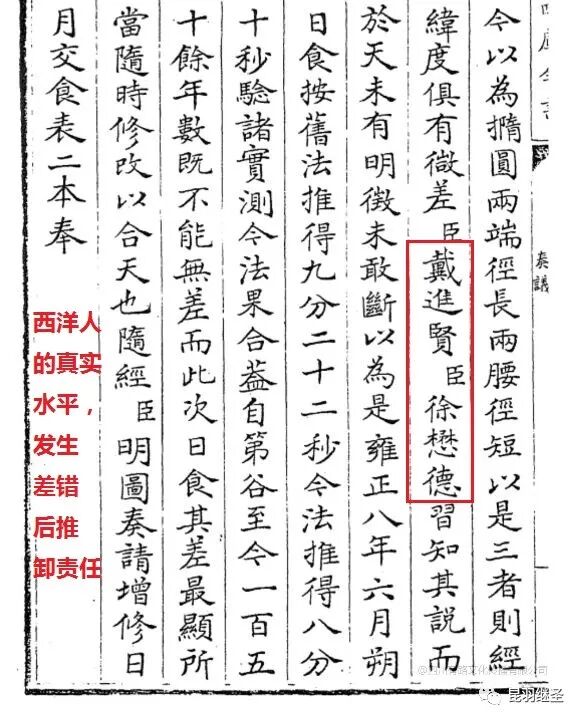 奏議
今以為撱圓兩端徑長兩腰徑短以是三者則經
緯度俱有微差臣戴進賢臣徐懋德習知其說而
於天未有明徵未敢斷以為是雍正八年六月朔
日食按舊法推得九分二十二秒今法推得八分
十秒驗諸實測今法果合蓋自第谷至今一百五
十餘年數既不能無差而此次日食其差最顯所
當隨時修改以合天也隨經臣明圖奏請增修日
月交食表二本奉
西洋人
的真实
水平，
发生
差错
后推
卸责任
昆羽继圣